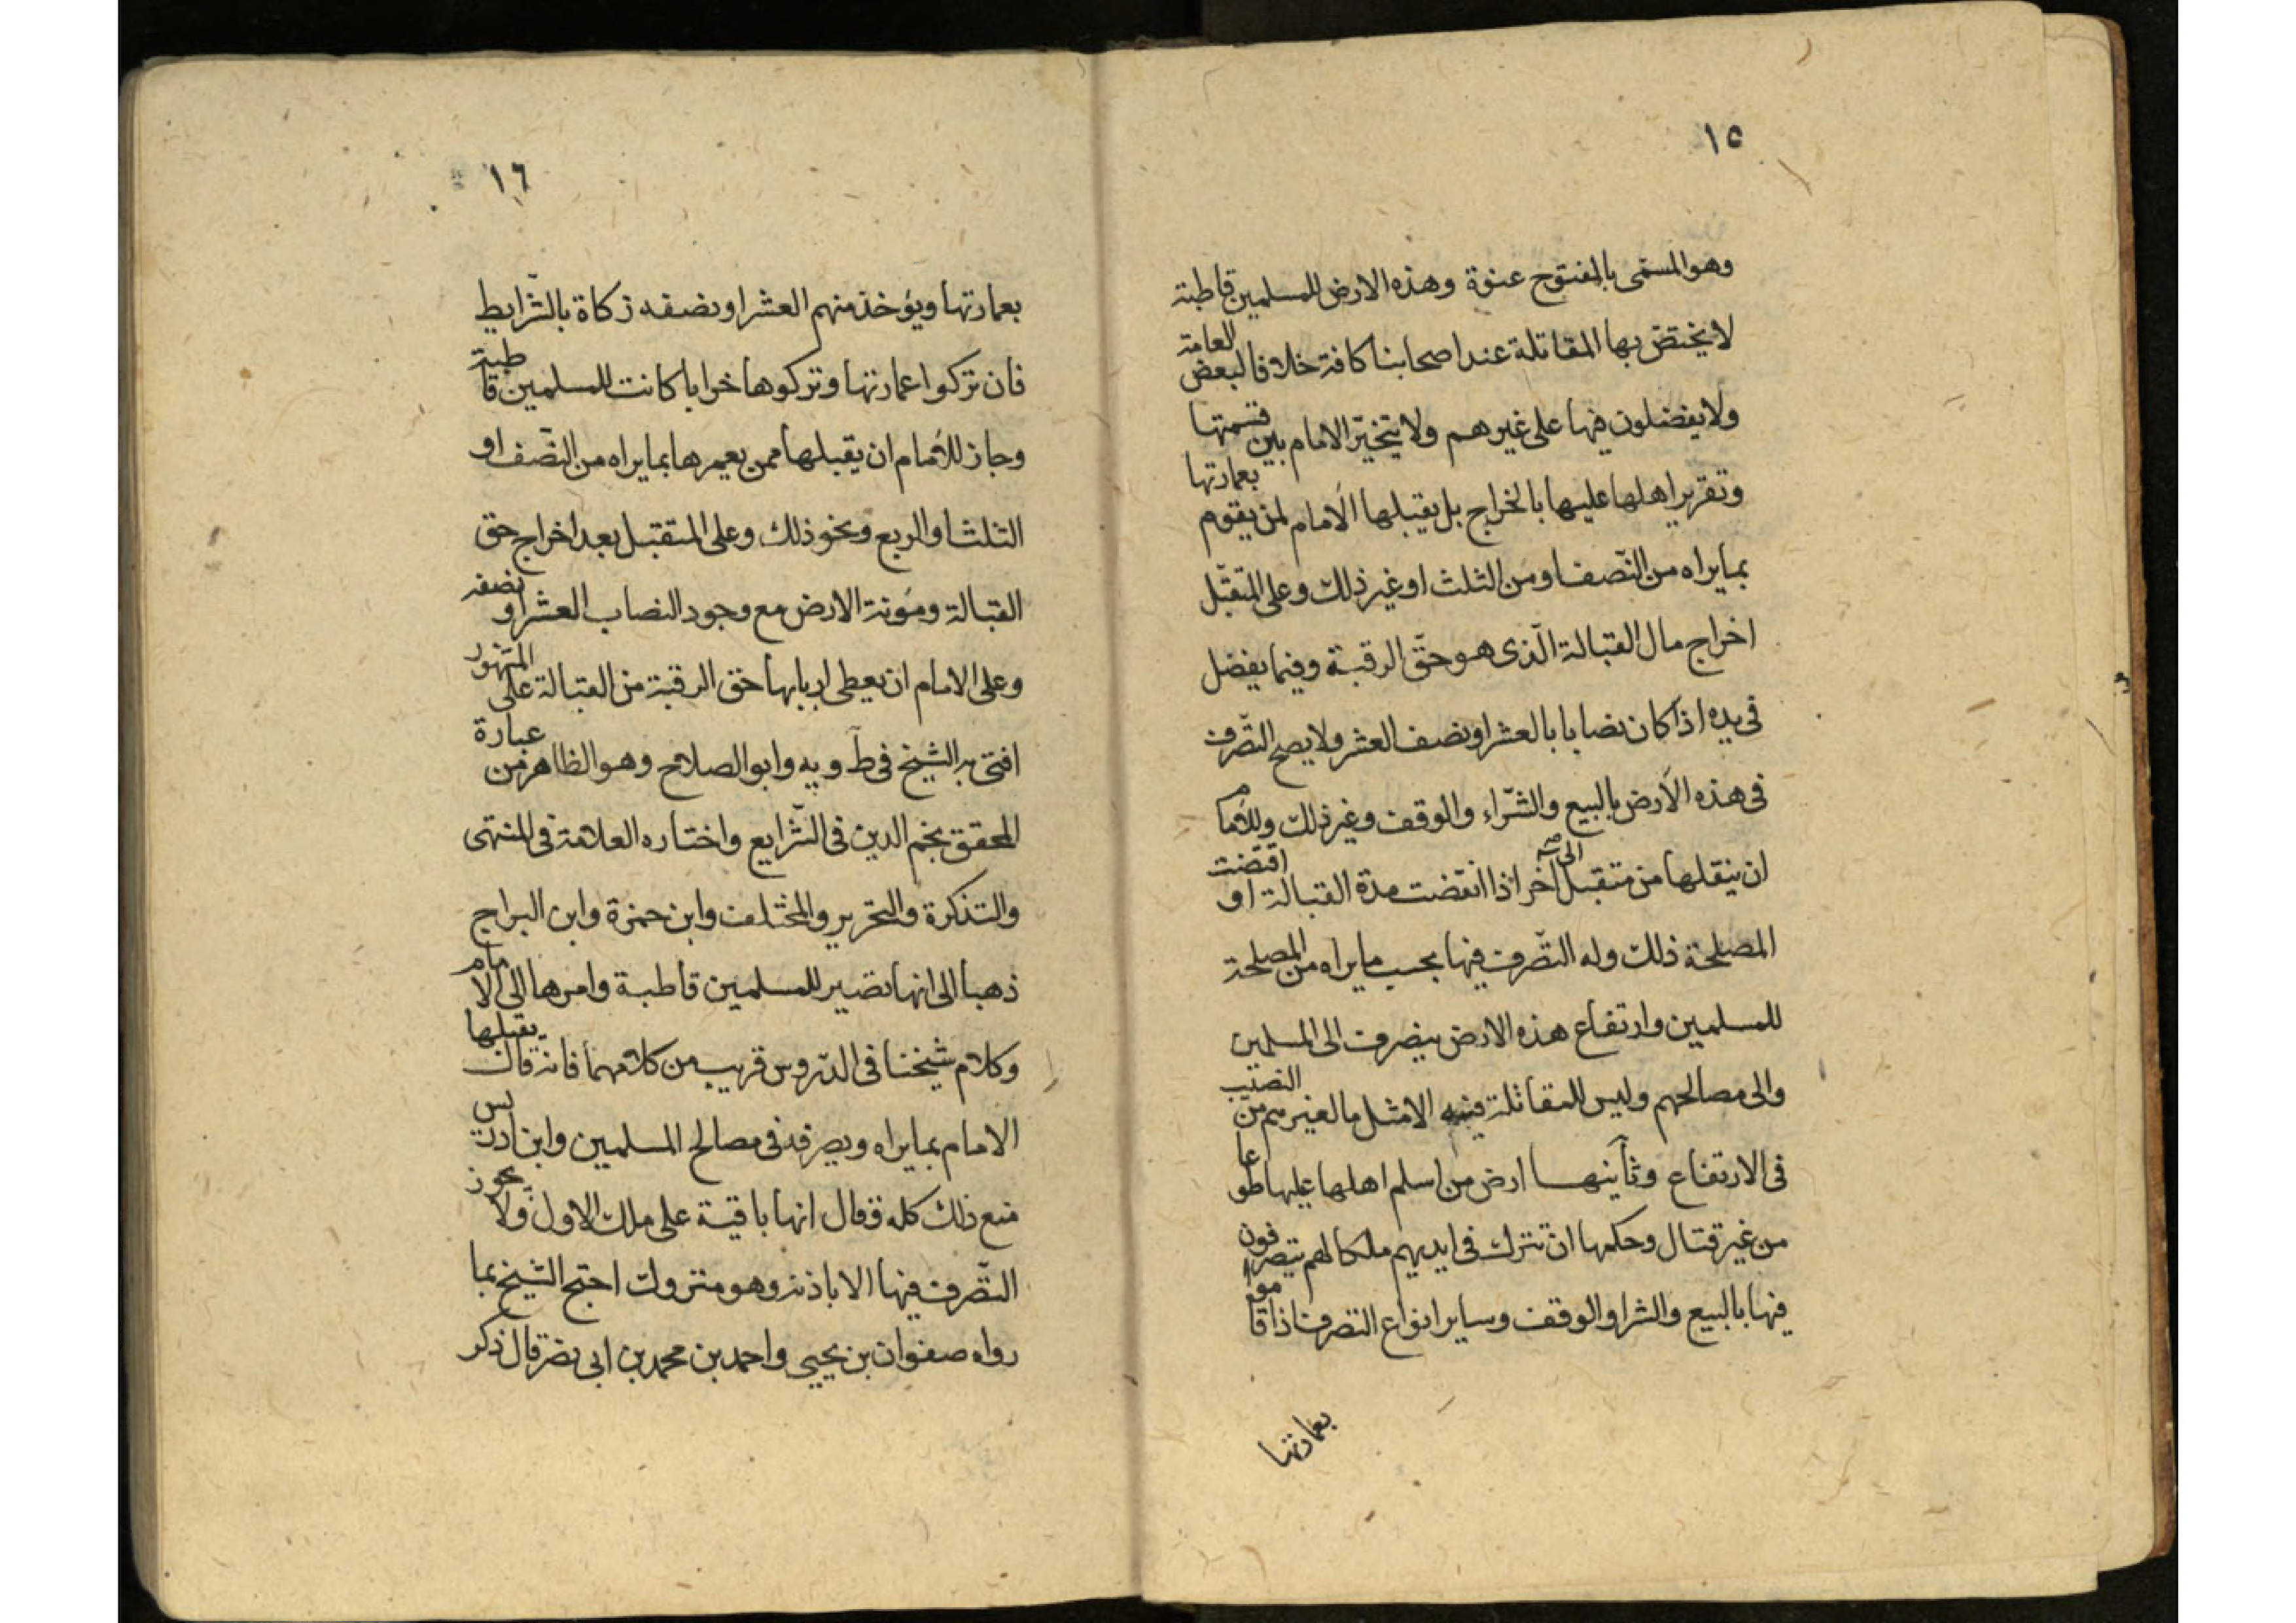 ١٥
وهو المسمى بالمفتوح عنوة وهذه الارض للمسلمين قاطبة
لا يختص بها المقاتلة عند اصحابنا كافة خلافا لبعض العامة
ولا يفضلون فيها على غيرهم ولا يتخيّر الامام بين قسمتها
وتقرير اهلها عليها بالخراج بل يقبلها الامام لمن يقوم بعمارتها
بما يراه من النّصف او من الثلث او غير ذلك وعلى المتقبّل
اخراج مال القبالة الّذى هو حقّ الرقبة وفيما يفضل
فى يده اذا كان نصابا بالعشر او نصف العشر ولا يصح التّصرف
فى هذه الارض بالبيع والشّراء والوقف وغير ذلك وللأمام
ان ينقلها من متقبل الى آخر اذا انقضت مدة القبالة او اقتضت
المصلحة ذلك وله التّصرف فيها بحسب ما يراه من المصلحة
للمسلمين وارتفاع هذه الارض ينصرف الى المسلمين
والى مصالحهم وليس للمقاتلة فيه الا مثل ما لغيرهم من النصيب
فى الارتفاع وثانيها ارض من اسلم اهلها عليها طوعا
من غير قتال وحكمها ان تترك فى ايديهم ملكا لهم يتصرفون
فيها بالبيع والشرا والوقف وساير انواع التصرف اذا قاموا
بعمارتها
١٦
بعمارتها ويؤخذ منهم العشر او نصفه زكاة بالشّرايط
فان تركوا عمارتها وتركوها خرابا كانت للمسلمين قاطبة
وجاز للأمام ان يقبلها ممن يعمرها بما يراه من النّصف او
الثلث او الربع ونحو ذلك وعلى المتقبل بعد اخراج حق
القبالة ومؤنة الارض مع وجود النصاب العشر او نصفه
وعلى الامام ان يعطى اربابها حق الرقبة من القبالة على المشهور
افتى به الشيخ فى ط و يه وابو الصلاح وهو الظاهر من عبارة
المحقق نجم الدين فى الشّرايع واختاره العلامة فى المنتهى
والتذكرة والتحرير والمختلف وابن حمزة وابن البراج
ذهبا الى انها تصير للمسلمين قاطبة وامرها الى الامام
وكلام شيخنا فى الدّروس قريب من كلامهما فانه قال يقبلها
الامام بما يراه ويصرفه فى مصالح المسلمين وابن ادريس
منع ذلك كله وقال انها باقية على ملك الاول ولا يجوز
التّصرف فيها الا باذنه وهو متروك احتج الشيخ بما
رواه صفوان بن يحيى واحمد بن محمد بن ابى نصر قال ذكر